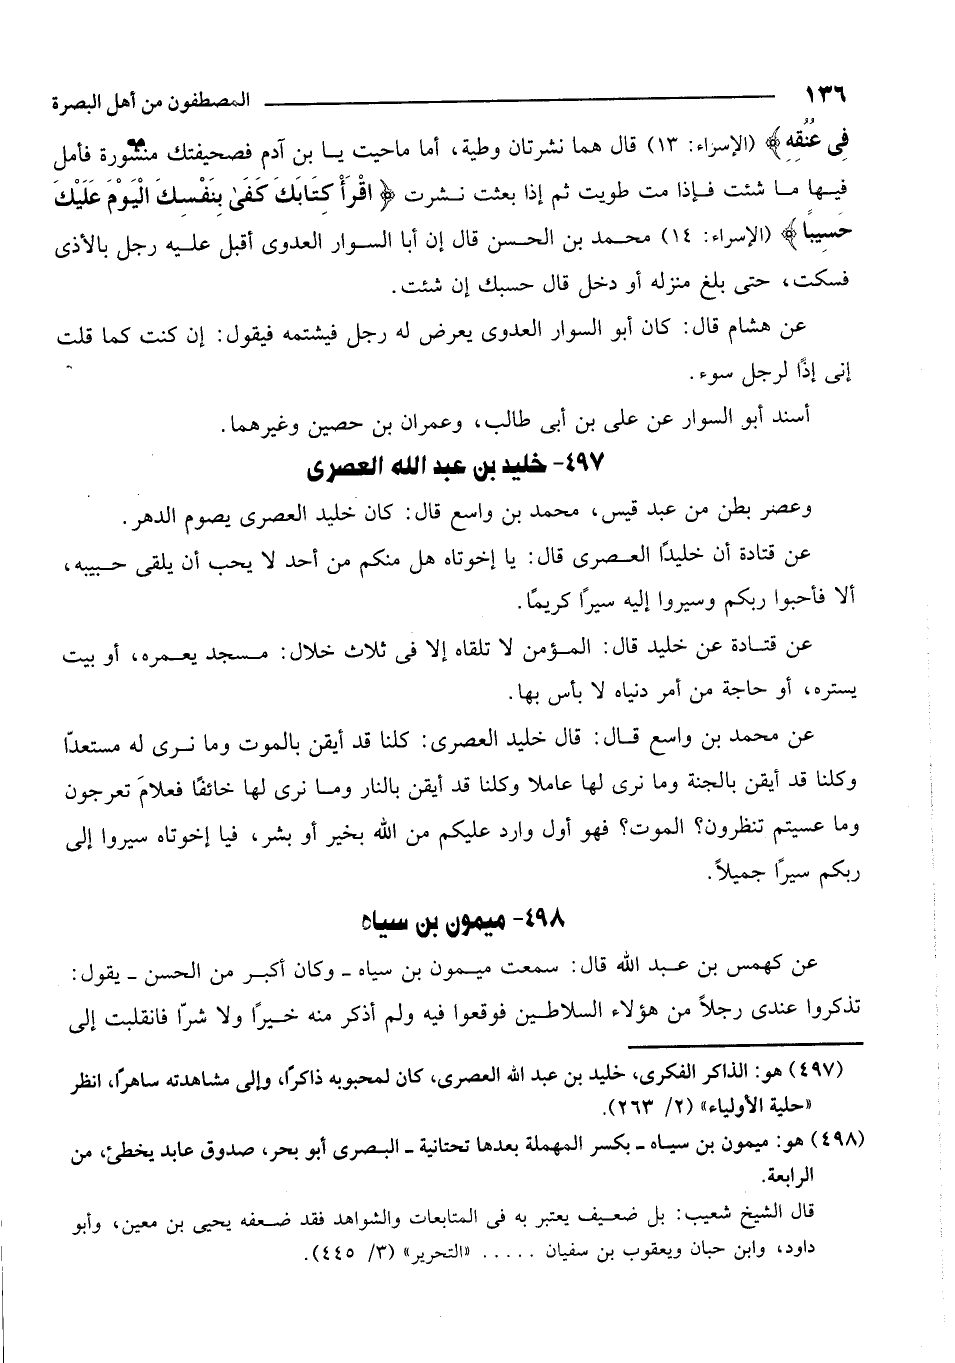 ١٣٦ المصطفون من أهل البصرة
فِى عُنُقِهِ﴾ (الإسراء: ١٣) قال هما نشرتان وطية، أما ماحيت يا بن آدم فصحيفتك منشورة فأمل
فيها ما شئت فإذا مت طويت ثم إذا بعثت نشرت ﴿ اقْرَأْ كِتَابَكَ كَفَىٰ بِنَفْسِكَ الْيَوْمَ عَلَيْكَ
حَسِيبًا﴾ (الإسراء: ١٤) محمد بن الحسن قال إن أبا السوار العدوى أقبل عليه رجل بالأذى
فسكت، حتى بلغ منزله أو دخل قال حسبك إن شئت.
عن هشام قال: كان أبو السوار العدوى يعرض له رجل فيشتمه فيقول: إن كنت كما قلت
إنى إذًا لرجل سوء.
أسند أبو السوار عن على بن أبى طالب، وعمران بن حصين وغيرهما.
٤٩٧- خليد بن عبد الله العصرى
وعصر بطن من عبد قيس، محمد بن واسع قال: كان خليد العصرى يصوم الدهر.
عن قتادة أن خليدًا العصرى قال: يا إخوتاه هل منكم من أحد لا يحب أن يلقى حبيبه،
ألا فأحبوا ربكم وسيروا إليه سيرًا كريمًا.
عن قتادة عن خليد قال: المؤمن لا تلقاه إلا فى ثلاث خلال: مسجد يعمره، أو بيت
يستره، أو حاجة من أمر دنياه لا بأس بها.
عن محمد بن واسع قال: قال خليد العصرى: كلنا قد أيقن بالموت وما نرى له مستعدًا
وكلنا قد أيقن بالجنة وما نرى لها عاملا وكلنا قد أيقن بالنار وما نرى لها خائفًا فعلامَ تعرجون
وما عسيتم تنظرون؟ الموت؟ فهو أول وارد عليكم من الله بخير أو بشر، فيا إخوتاه سيروا إلى
ربكم سيرًا جميلاً.
٤٩٨- ميمون بن سياه
عن كهمس بن عبد الله قال: سمعت ميمون بن سياه ـ وكان أكبر من الحسن ـ يقول:
تذكروا عندى رجلاً من هؤلاء السلاطين فوقعوا فيه ولم أذكر منه خيرًا ولا شرّا فانقلبت إلى
(٤٩٧) هو: الذاكر الفكرى، خليد بن عبد الله العصرى، كان لمحبوبه ذاكرًا، وإلى مشاهدته ساهرًا، انظر
«حلية الأولياء» (٢/ ٢٦٣).
(٤٩٨) هو: ميمون بن سياه ـ بكسر المهملة بعدها تحتانية ـ البصرى أبو بحر، صدوق عابد يخطئ، من
الرابعة.
قال الشيخ شعيب: بل ضعيف يعتبر به فى المتابعات والشواهد فقد ضعفه يحيى بن معين، وأبو
داود، وابن حبان ويعقوب بن سفيان ..... «التحرير» (٣/ ٤٤٥).